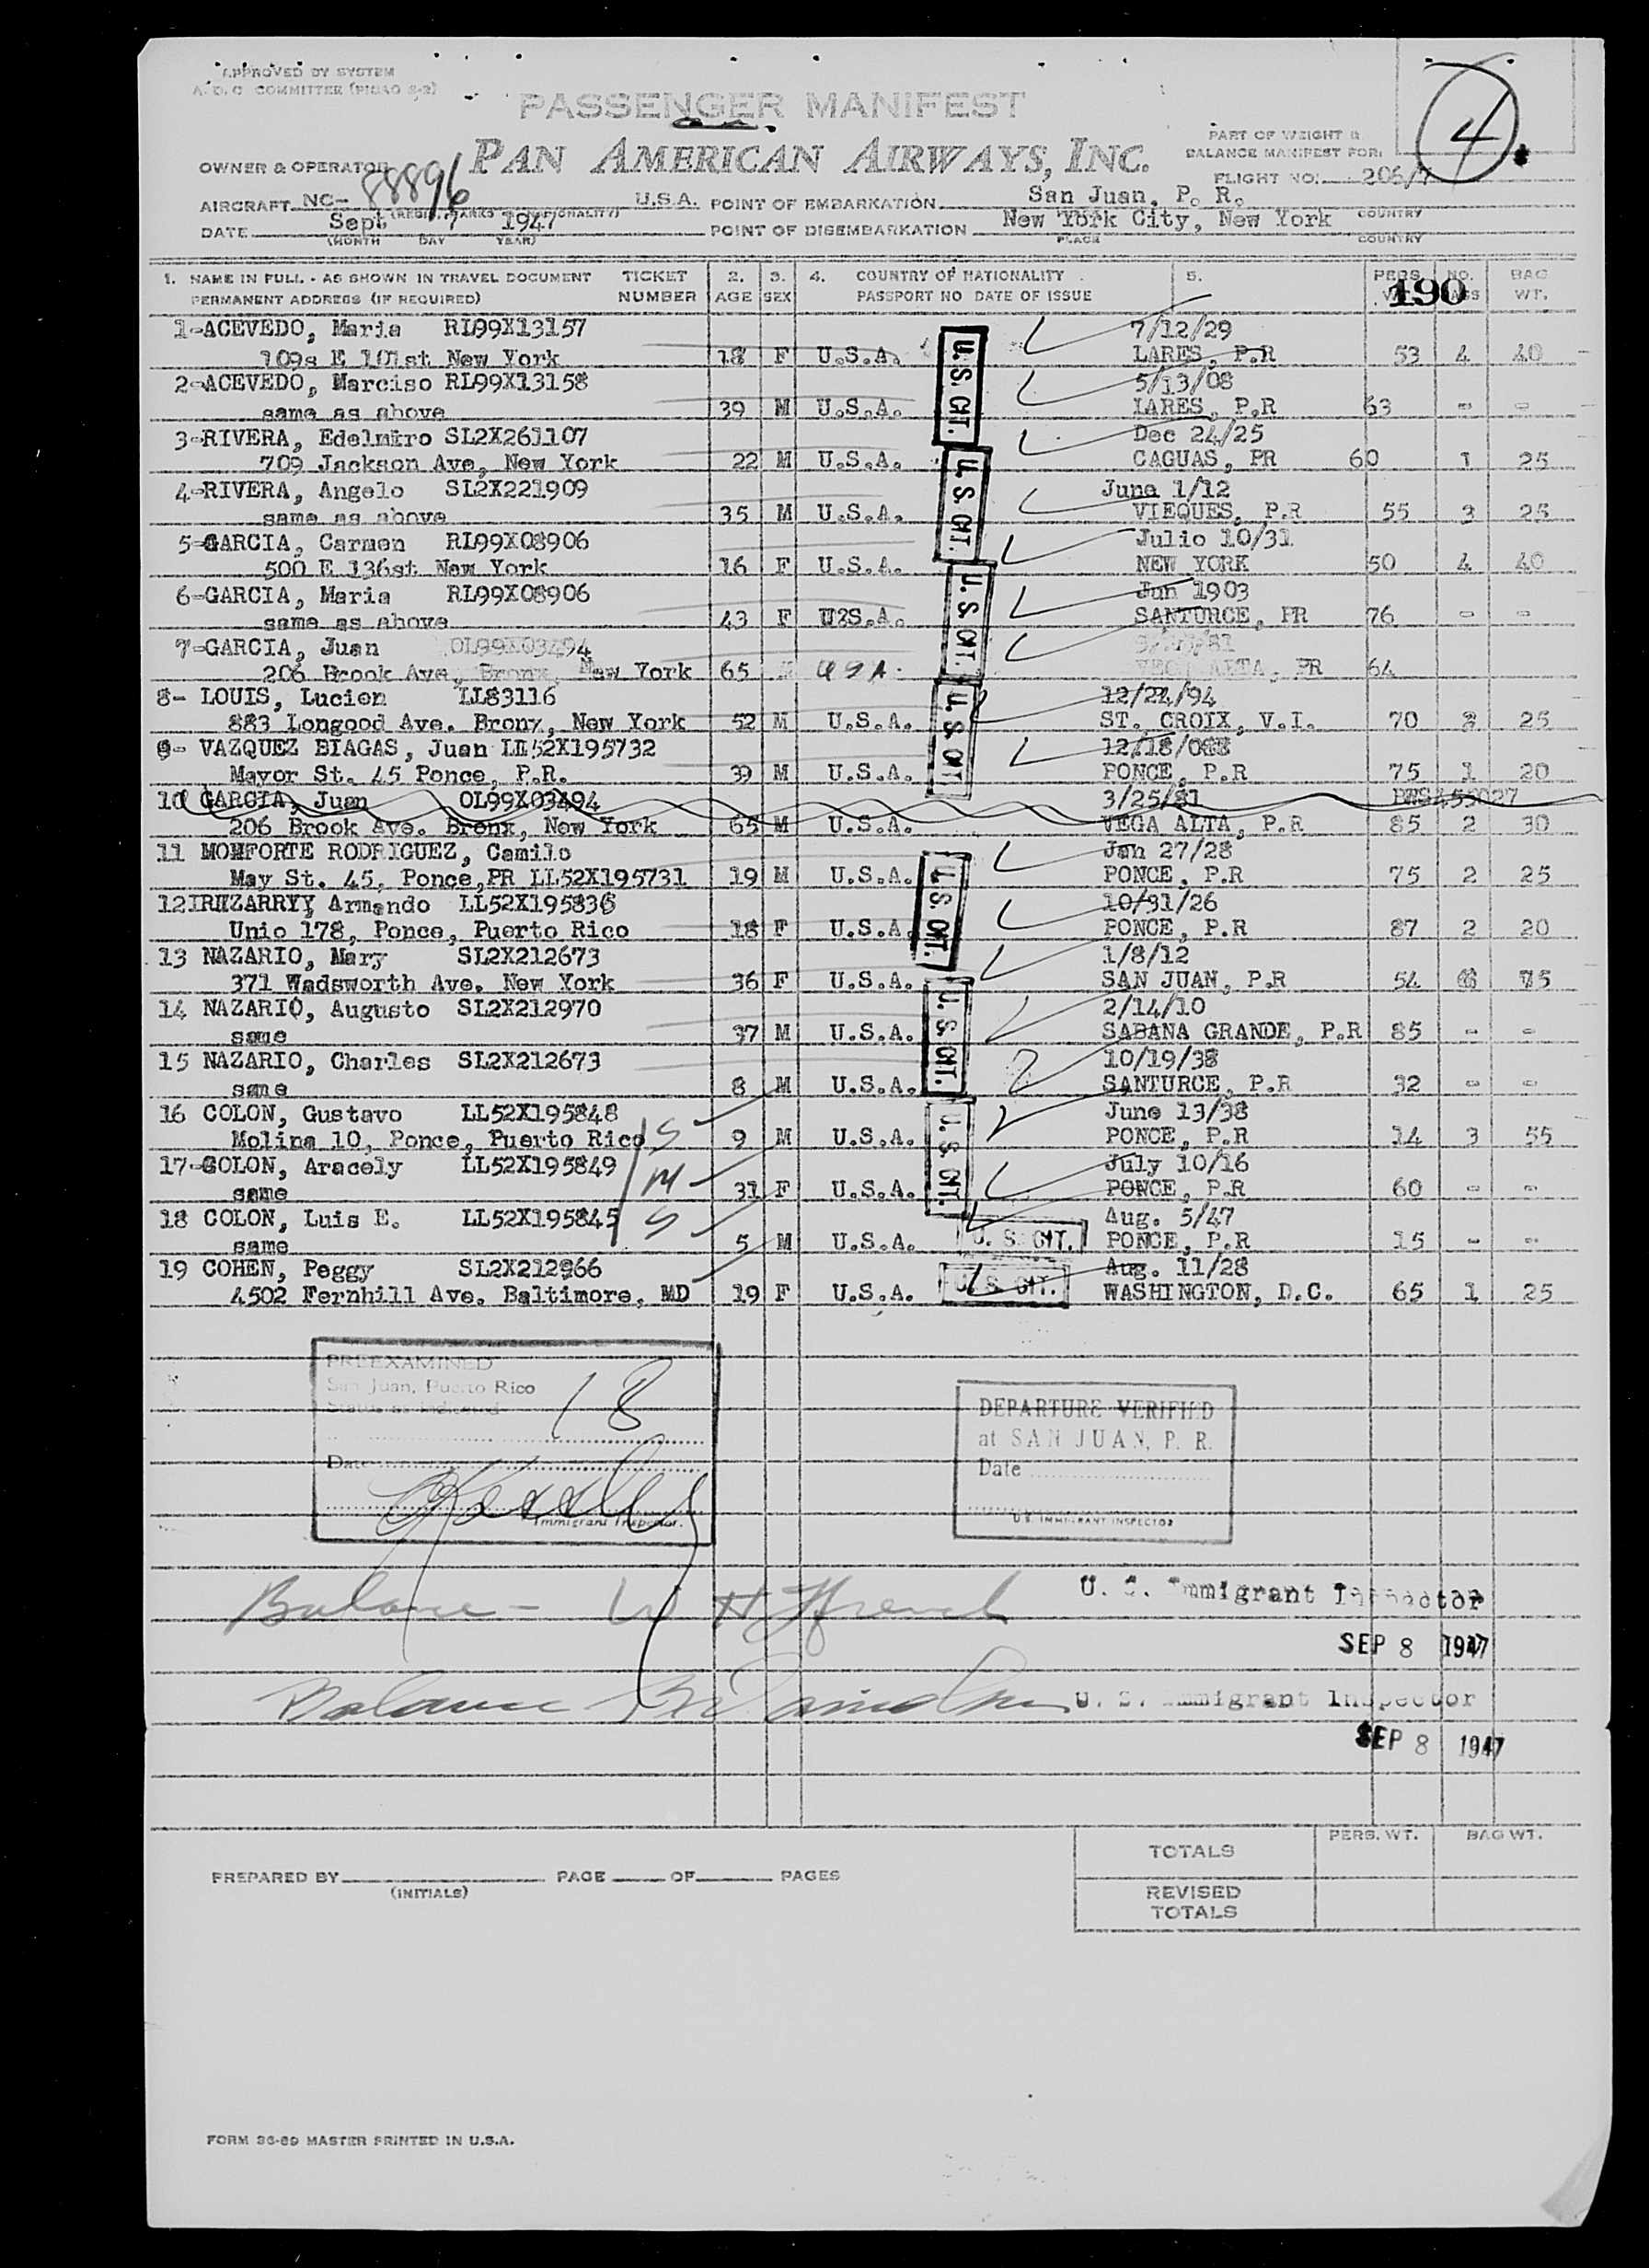 APPROVED BY SYSTEM
A.D.C COMMITTEE (PICAO S-2)
PASSENGER MANIFEST
4
PAN AMERICAN AIRWAYS, INC.
PART OF WEIGHT &
BALANCE MANIFEST FOR:
OWNER & OPERATOR
FLIGHT NO. 206/7
AIRCRAFT NC- 88896 U.S.A. POINT OF EMBARKATION San Juan, P. R.
DATE Sept 7 1947 POINT OF DISEMBARKATION New York City, New York COUNTRY
(MONTH DAY YEAR) PLACE COUNTRY
1. NAME IN FULL - AS SHOWN IN TRAVEL DOCUMENT TICKET 2. 3. 4. COUNTRY OF NATIONALITY 5. PERS NO. BAG
PERMANENT ADDRESS (IF REQUIRED) NUMBER AGE SEX PASSPORT NO DATE OF ISSUE 190 WT.
1-ACEVEDO, Maria RL99X13157 7/12/29
109s E 101st New York 18 F U.S.A. U.S. CIT. LARES, P.R 53 4 40
2-ACEVEDO, Marciso RL99X13158 5/13/08
same as above 39 M U.S.A. LARES, P.R 63 - -
3-RIVERA, Edelmiro SL2X261107 Dec 24/25
709 Jackson Ave, New York 22 M U.S.A. U.S. CIT. CAGUAS, PR 60 1 25
4-RIVERA, Angelo SL2X221909 June 1/12
same as above 35 M U.S.A. VIEQUES, P.R 55 3 25
5-GARCIA, Carmen RL99X08906 Julio 10/31
500 E 136st New York 16 F U.S.A. NEW YORK 50 4 40
6-GARCIA, Maria RL99X08906 Jun 1903
same as above 43 F U.S.A. U.S. CIT. SANTURCE, PR 76 - -
7-GARCIA, Juan OL99X03494
206 Brook Ave, Bronx, New York 65 USA ALTA, PR 64
8- LOUIS, Lucien LL83116 12/24/94
883 Longood Ave. Bronx, New York 52 M U.S.A. U.S. CIT ST. CROIX, V.I. 70 25
9- VAZQUEZ BIAGAS, Juan LL52X195732 12/18/
Mayor St. 45 Ponce, P.R. 39 M U.S.A. PONCE, P.R 75 1 20
10 GARCIA, Juan OL99X03494 3/25/81
206 Brook Ave. Bronx, New York 65 M U.S.A. VEGA ALTA, P.R 85 2 30
11 MONFORTE RODRIGUEZ, Camilo Jan 27/28
May St. 45, Ponce,PR LL52X195731 19 M U.S.A. U.S. CIT. PONCE, P.R 75 2 25
12 Armando LL52X195836 10/31/26
Unio 178, Ponce, Puerto Rico 18 F U.S.A PONCE, P.R 87 2 20
13 NAZARIO, Mary SL2X212673 1/8/12
371 Wadsworth Ave. New York 36 F U.S.A. SAN JUAN, P.R 54 75
14 NAZARIO, Augusto SL2X212970 2/14/10
same 37 M U.S.A. U.S. CIT. SABANA GRANDE, P.R 85 - -
15 NAZARIO, Charles SL2X212673 10/19/38
same 8 M U.S.A. SANTURCE, P.R 32 - -
16 COLON, Gustavo LL52X195848 June 13/38
Molina 10, Ponce, Puerto Rico S 9 M U.S.A. U.S. CIT. PONCE, P.R 14 3 55
17-COLON, Aracely LL52X195849 July 10/16
same M 31 F U.S.A. PONCE, P.R 60 - -
18 COLON, Luis E. LL52X195845 Aug. 5/47
same S 5 M U.S.A. U. S. CIT. PONCE, P.R 15 - -
19 COHEN, Peggy SL2X212966 Aug. 11/28
4502 Fernhill Ave. Baltimore, MD 19 F U.S.A. U.S. CIT. WASHINGTON, D.C. 65 1 25
PREEXAMINED
San Juan, Puerto Rico
Status as indicated
18
Date
Immigrant Inspector.
DEPARTURE VERIFIED
at SAN JUAN, P. R.
Date
U.S. IMMIGRANT INSPECTOR
Balance - W H French U. S. Immigrant Inspector
SEP 8 1947
Balance U. S. Immigrant Inspector
SEP 8 1947
TOTALS PERS. WT. BAG WT.
PREPARED BY PAGE OF PAGES
(INITIALS)
REVISED
TOTALS
FORM 36-69 MASTER PRINTED IN U.S.A.